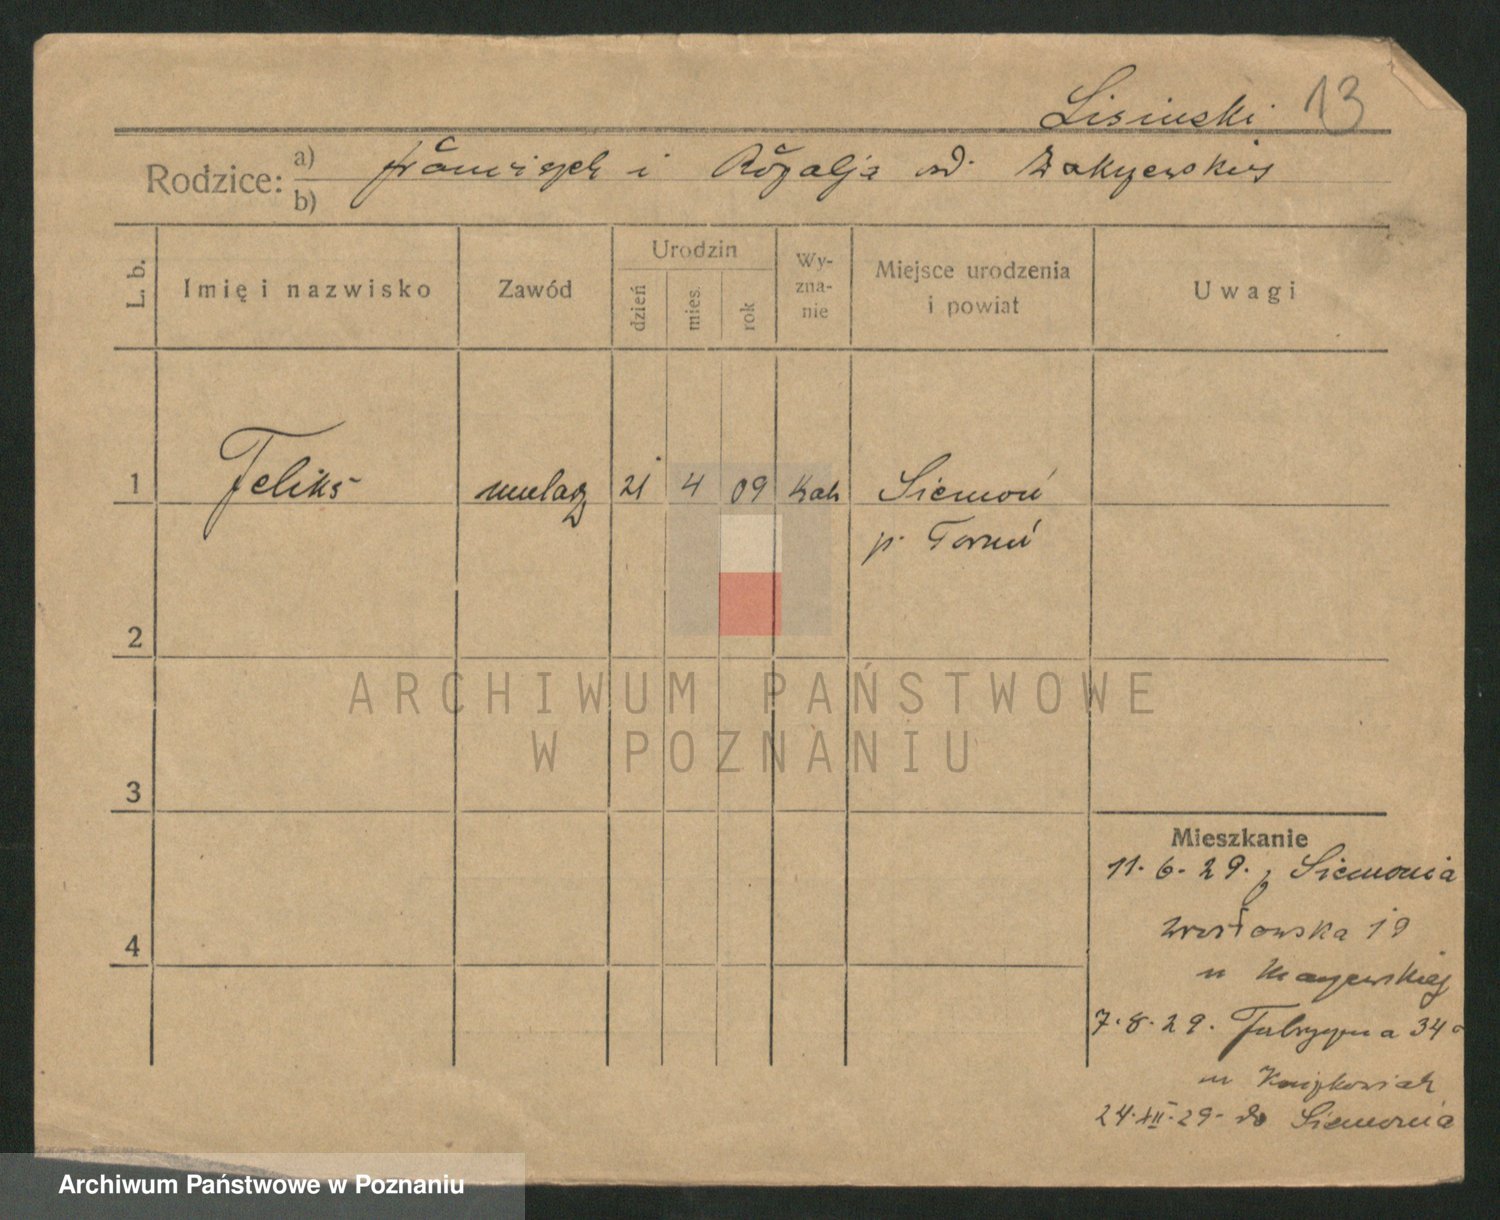 Lisiński 13
Rodzice: a) Franciszek i Rozalja od Zakrzewskich
b)
L. b.
Imię i nazwisko
Zawód
Urodzin
dzień
mies.
rok
Wy-
zna-
nie
Miejsce urodzenia
i powiat
Uwagi
1 Feliks 21 4 09 Kat Siemoń
p. Toruń
2
3
4
Mieszkanie
11. 6. 29. z Siemonia
19
u
7. 8. 29. Fabryczna 34
u
24. XII. 29. do Siemonia
ARCHIWUM PAŃSTWOWE
W POZNANIU
Archiwum Państwowe w Poznaniu